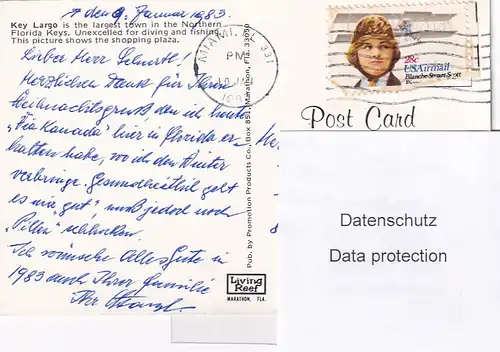 den 9. Januar 1983.
Key Largo is the largest town in the Northern
Florida Keys. Unexcelled for diving and fishing.
This picture shows the shopping plaza.
Lieber Herr
Herzlichen Dank für Ihren
Weihnachtsgruß den ich heute
"Via Kanada" hier in Florida er-
halten habe, wo ich den Winter
verbringe. Gesundheitlich geht
es mir "gut" muß jedoch noch
"Pillen" schlucken.
Ich wünsche Alles Gute in
1983 auch Ihrer Familie
Ihr
Pub. by Promotion Products Co., Box 891, Marathon, Fla. 33050
Living
Reef
MARATHON, FLA.
MIAMI, FL 331
PM
28c
USAirmail
Blanche Stuart Scott
Post Card
Datenschutz
Data protection